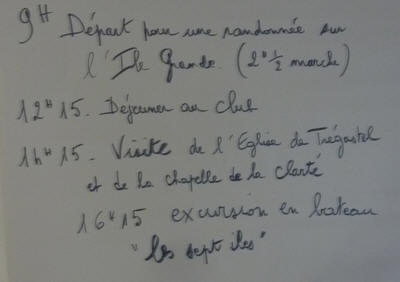 9H Départ pour une randonnée sur
l'Ile Grande. (2H 1/2 marche)
12H15. Déjeuner au club
14H15. Visite de l'Eglise de Trégastel
et de la chapelle de la clarté
16H15 excursion en bateau
"les sept iles"